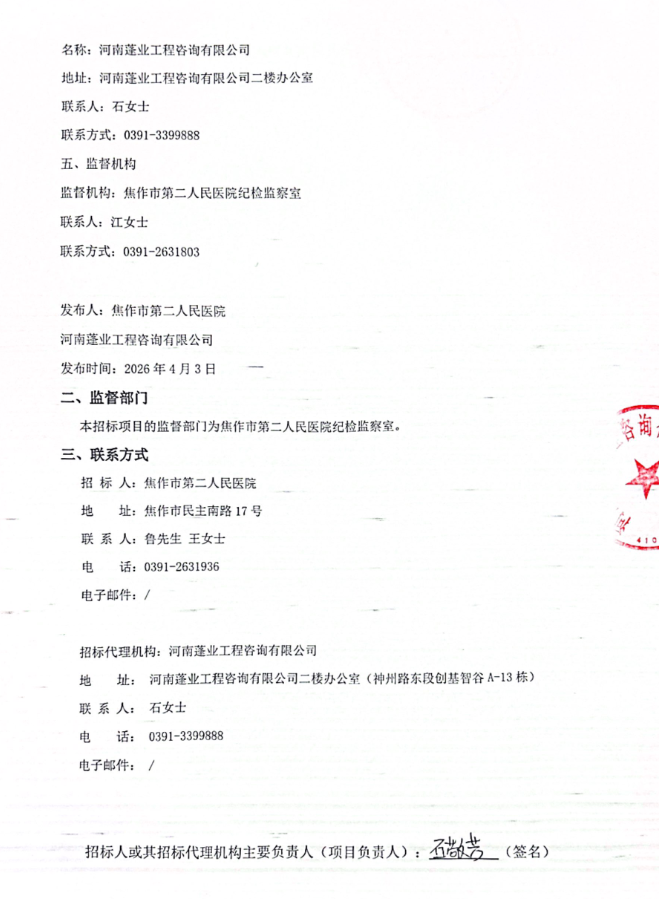 名称：河南蓬业工程咨询有限公司
地址：河南蓬业工程咨询有限公司二楼办公室
联系人：石女士
联系方式：0391-3399888
五、监督机构
监督机构：焦作市第二人民医院纪检监察室
联系人：江女士
联系方式：0391-2631803
发布人：焦作市第二人民医院
河南蓬业工程咨询有限公司
发布时间：2026 年 4 月 3 日
二、监督部门
本招标项目的监督部门为焦作市第二人民医院纪检监察室。
三、联系方式
招 标 人：焦作市第二人民医院
地 址：焦作市民主南路 17 号
联 系 人：鲁先生 王女士
电 话：0391-2631936
电子邮件：/
招标代理机构：河南蓬业工程咨询有限公司
地 址： 河南蓬业工程咨询有限公司二楼办公室（神州路东段创基智谷 A-13 栋）
联 系 人： 石女士
电 话： 0391-3399888
电子邮件： /
咨询
410
招标人或其招标代理机构主要负责人（项目负责人）：（签名）